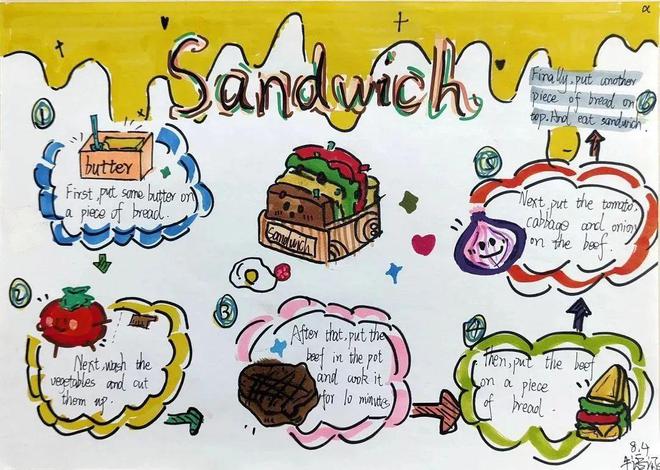 Sandwich
1
butter
First, put some butter on
a piece of bread.
2
Next, wash the
vegetables and cut
them up.
3
After that, put the
beef in the pot
and cook it
for 10 minutes
4
Then, put the beef
on a piece
of bread.
5
Next, put the tomato,
cabbage and onion
on the beef.
6
Finally, put another
piece of bread on
top. And eat sandwich.
Sandwich
8.4